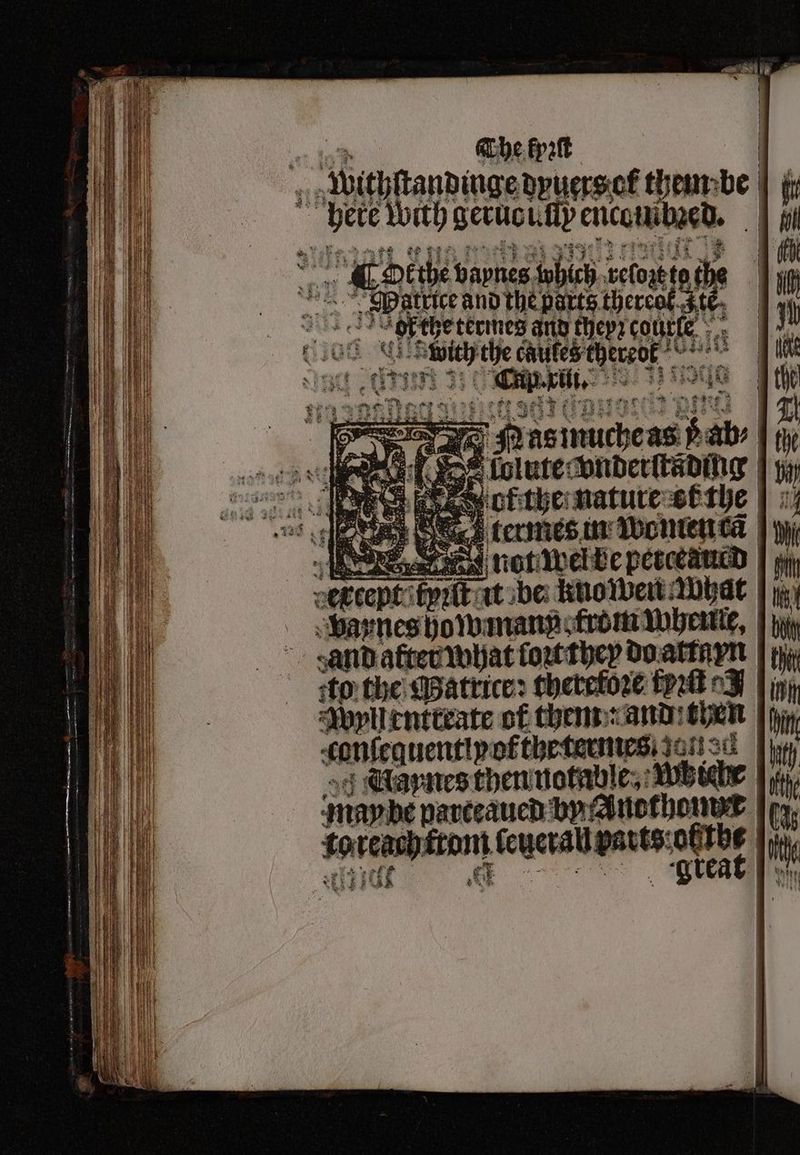 The fyrst
withstandinge dyuers of them be
here with geruously encombred.
¶ Of the vaynes which resort to the
Matrice and the parts thereof. Ite.
of the termes and theyr course
with the causes thereof
Cap. xiii.
N as muche as þ ab-
solute vnderstāding
of the nature of the
termes in women cā
not wel be perceaued
except fyrst it be knowen what
vaynes how many, from whence,
and after what sort they do attayn
to the Matrice: therefore fyrst I
wyll entreate of them: and then
consequently of the termes.
Vaynes then notable, whiche
may be parceaued by Anothomye
to reach from seuerall parts of the
great